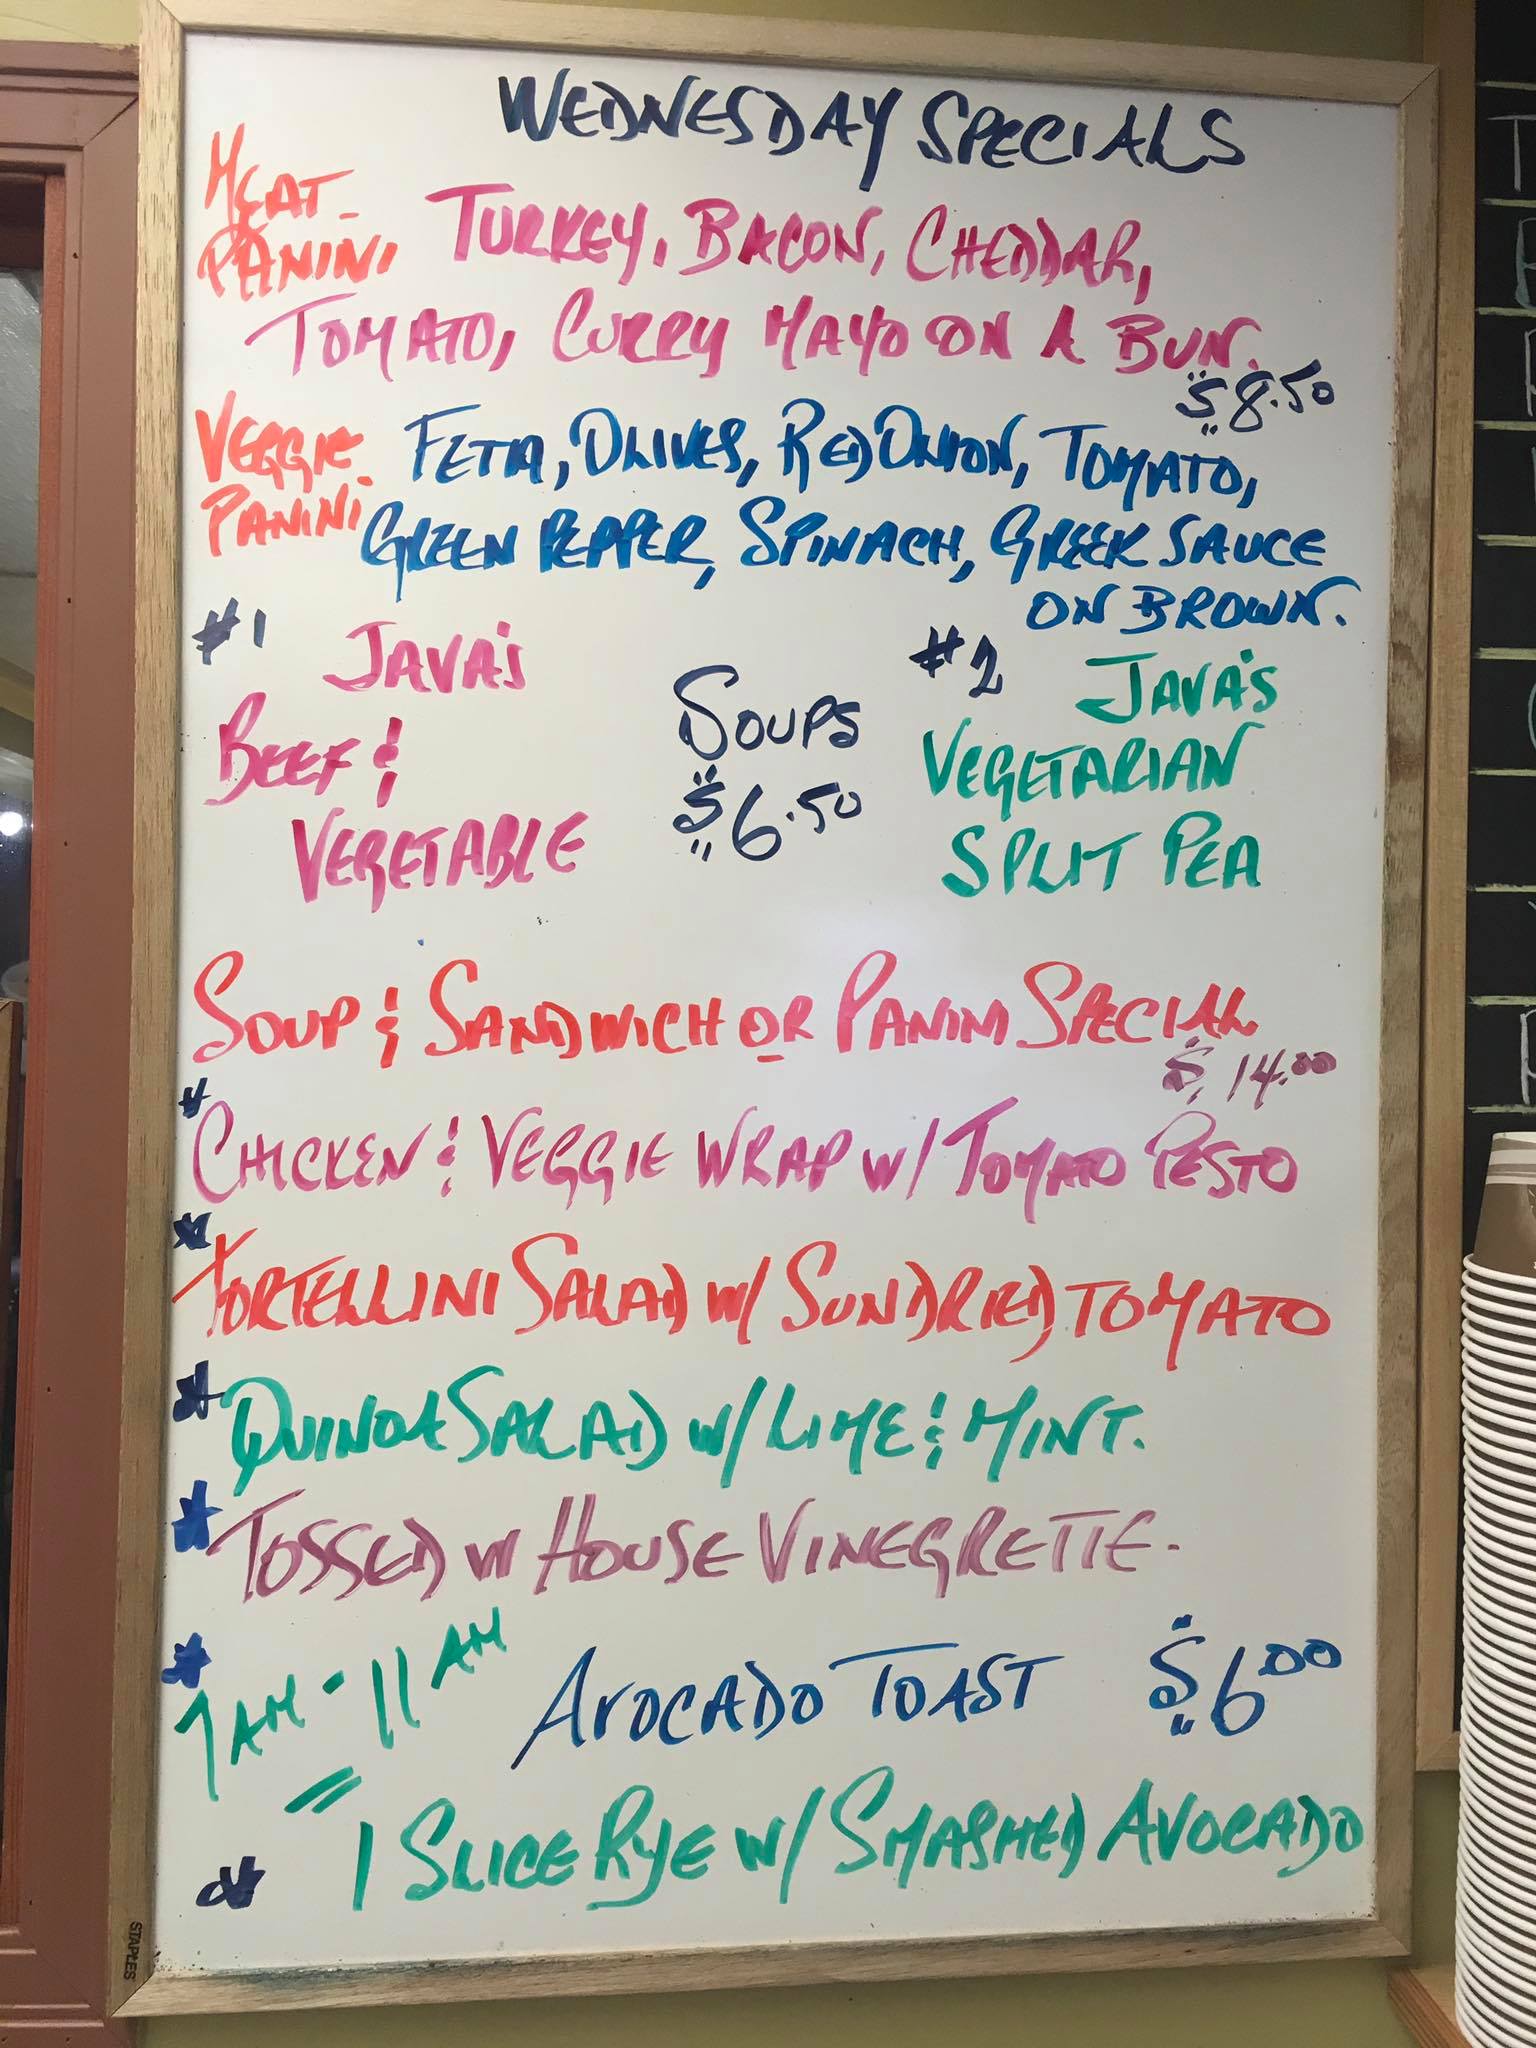 WEDNESDAY SPECIALS
MEAT PANINI TURKEY, BACON, CHEDDAR,
TOMATO, CURRY MAYO ON A BUN.
$8.50
VEGGIE PANINI FETA, OLIVES, RED ONION, TOMATO,
GREEN PEPPER, SPINACH, GREEK SAUCE
ON BROWN.
#1 JAVA'S
BEEF &
VEGETABLE
SOUPS
$6.50
#2 JAVA'S
VEGETARIAN
SPLIT PEA
SOUP & SANDWICH OR PANINI SPECIAL
$14.00
* CHICKEN & VEGGIE WRAP W/ TOMATO PESTO
* TORTELLINI SALAD W/ SUNDRIED TOMATO
* QUINOA SALAD W/ LIME & MINT.
* TOSSED W HOUSE VINEGRETTE.
* 7AM-11AM AVOCADO TOAST $6.00
* 1 SLICE RYE W/ SMASHED AVOCADO
STAPLES